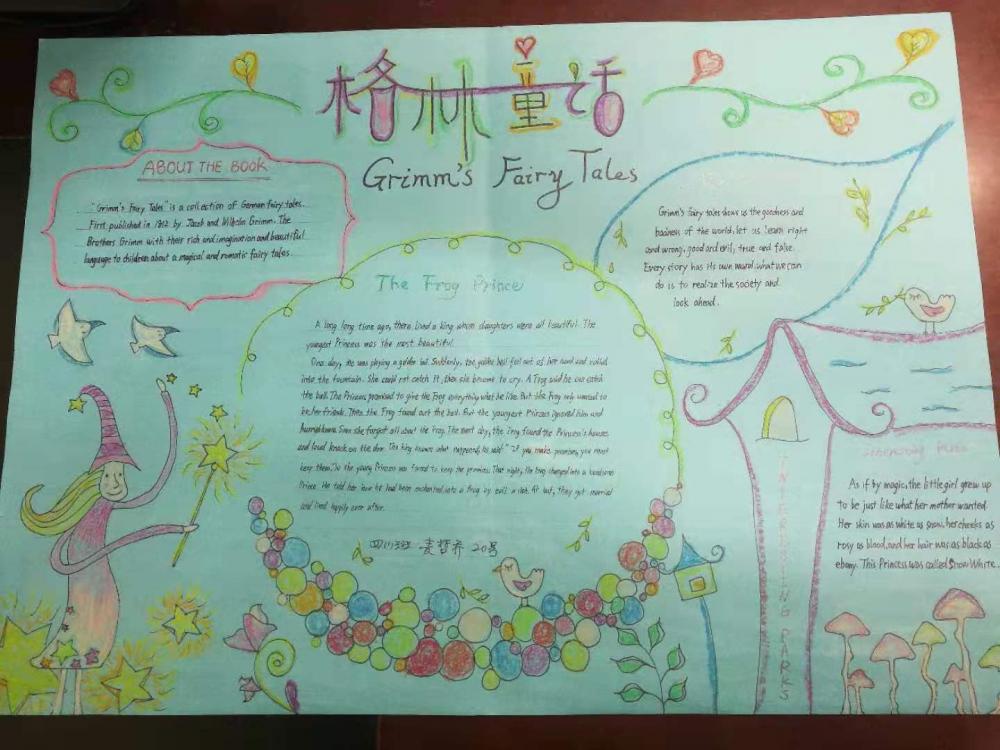 格林童话
Grimm's Fairy Tales
ABOUT THE BOOK
"Grimm's Fairy Tales" is a collection of German fairy tales.
First published in 1812 by Jacob and Wilhelm Grimm. The
Brothers Grimm with their rich and imagination and beautiful
language to children about a magical and romatic fairy tales.
Grimm's fairy tales show us the goodness and
badness of the world, let us learn right
and wrong, good and evil, true and false.
Every story has its own moral, what we can
do is to realize the society and
look ahead.
The Frog Prince
A long long time ago, there lived a king whose daughters were all beautiful. The
youngest Princess was the most beautiful.
One day, she was playing a golden ball. Suddenly, the golden ball fell out of her hand and rolled
into the fountain. She could not catch it, then she became to cry. A Frog said he can catch
the ball. The Princess promised to give the Frog everything what he like. But the Frog only wanted to
be her friends. Then the Frog found out the ball. But the youngest Princess ignored him and
Soon she forgot all about the frog. The next day, the frog found the Princess's houses
and loud knock on the door. The king knows what happened, he said "If you make promises, you must
keep them." So the young Princess was forced to keep the promises. That night, the frog changed into a handsome
Prince. He told her how he had been enchanted into a frog by evil witch. At last, they got married
and lived happily ever after.
20号
INTERESTING PARKS
As if by magic, the little girl grew up
to be just like what her mother wanted.
Her skin was as white as snow, her cheeks as
rosy as blood, and her hair was as black as
ebony. This Princess was called Snow White.